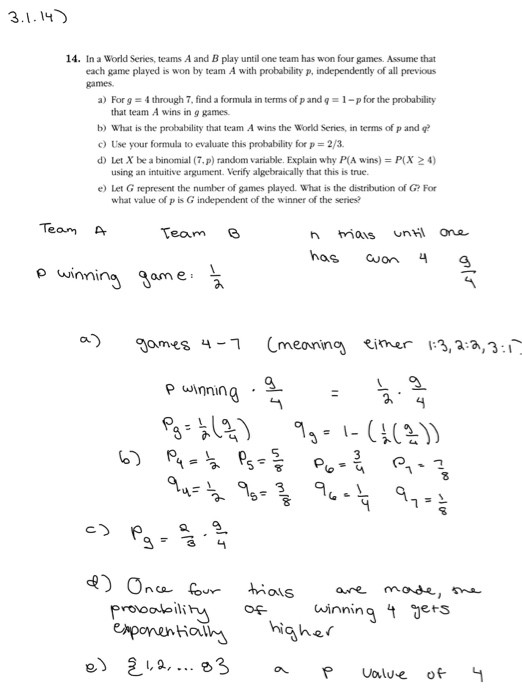 3.1.14)
14. In a World Series, teams A and B play until one team has won four games. Assume that
each game played is won by team A with probability p, independently of all previous
games.
a) For g = 4 through 7, find a formula in terms of p and q = 1−p for the probability
that team A wins in g games.
b) What is the probability that team A wins the World Series, in terms of p and q?
c) Use your formula to evaluate this probability for p = 2/3.
d) Let X be a binomial (7, p) random variable. Explain why P(A wins) = P(X ≥ 4)
using an intuitive argument. Verify algebraically that this is true.
e) Let G represent the number of games played. What is the distribution of G? For
what value of p is G independent of the winner of the series?
Team A Team B n trials until one
has won 4 g/4
p winning game: 1/2
a) games 4-7 (meaning either 1:3, 2:2, 3:1
p winning · g/4 = 1/2 · g/4
Pg = 1/2 (g/4) qg = 1 - (1/2 (g/4))
b) P4 = 1/2 P5 = 5/8 P6 = 3/4 P7 = 7/8
q4 = 1/2 q5 = 3/8 q6 = 1/4 q7 = 1/8
c) Pg = 2/3 · g/4
d) Once four trials are made, the
probability of winning 4 gets
exponentially higher
e) {1, 2, ... 8} a p value of 4